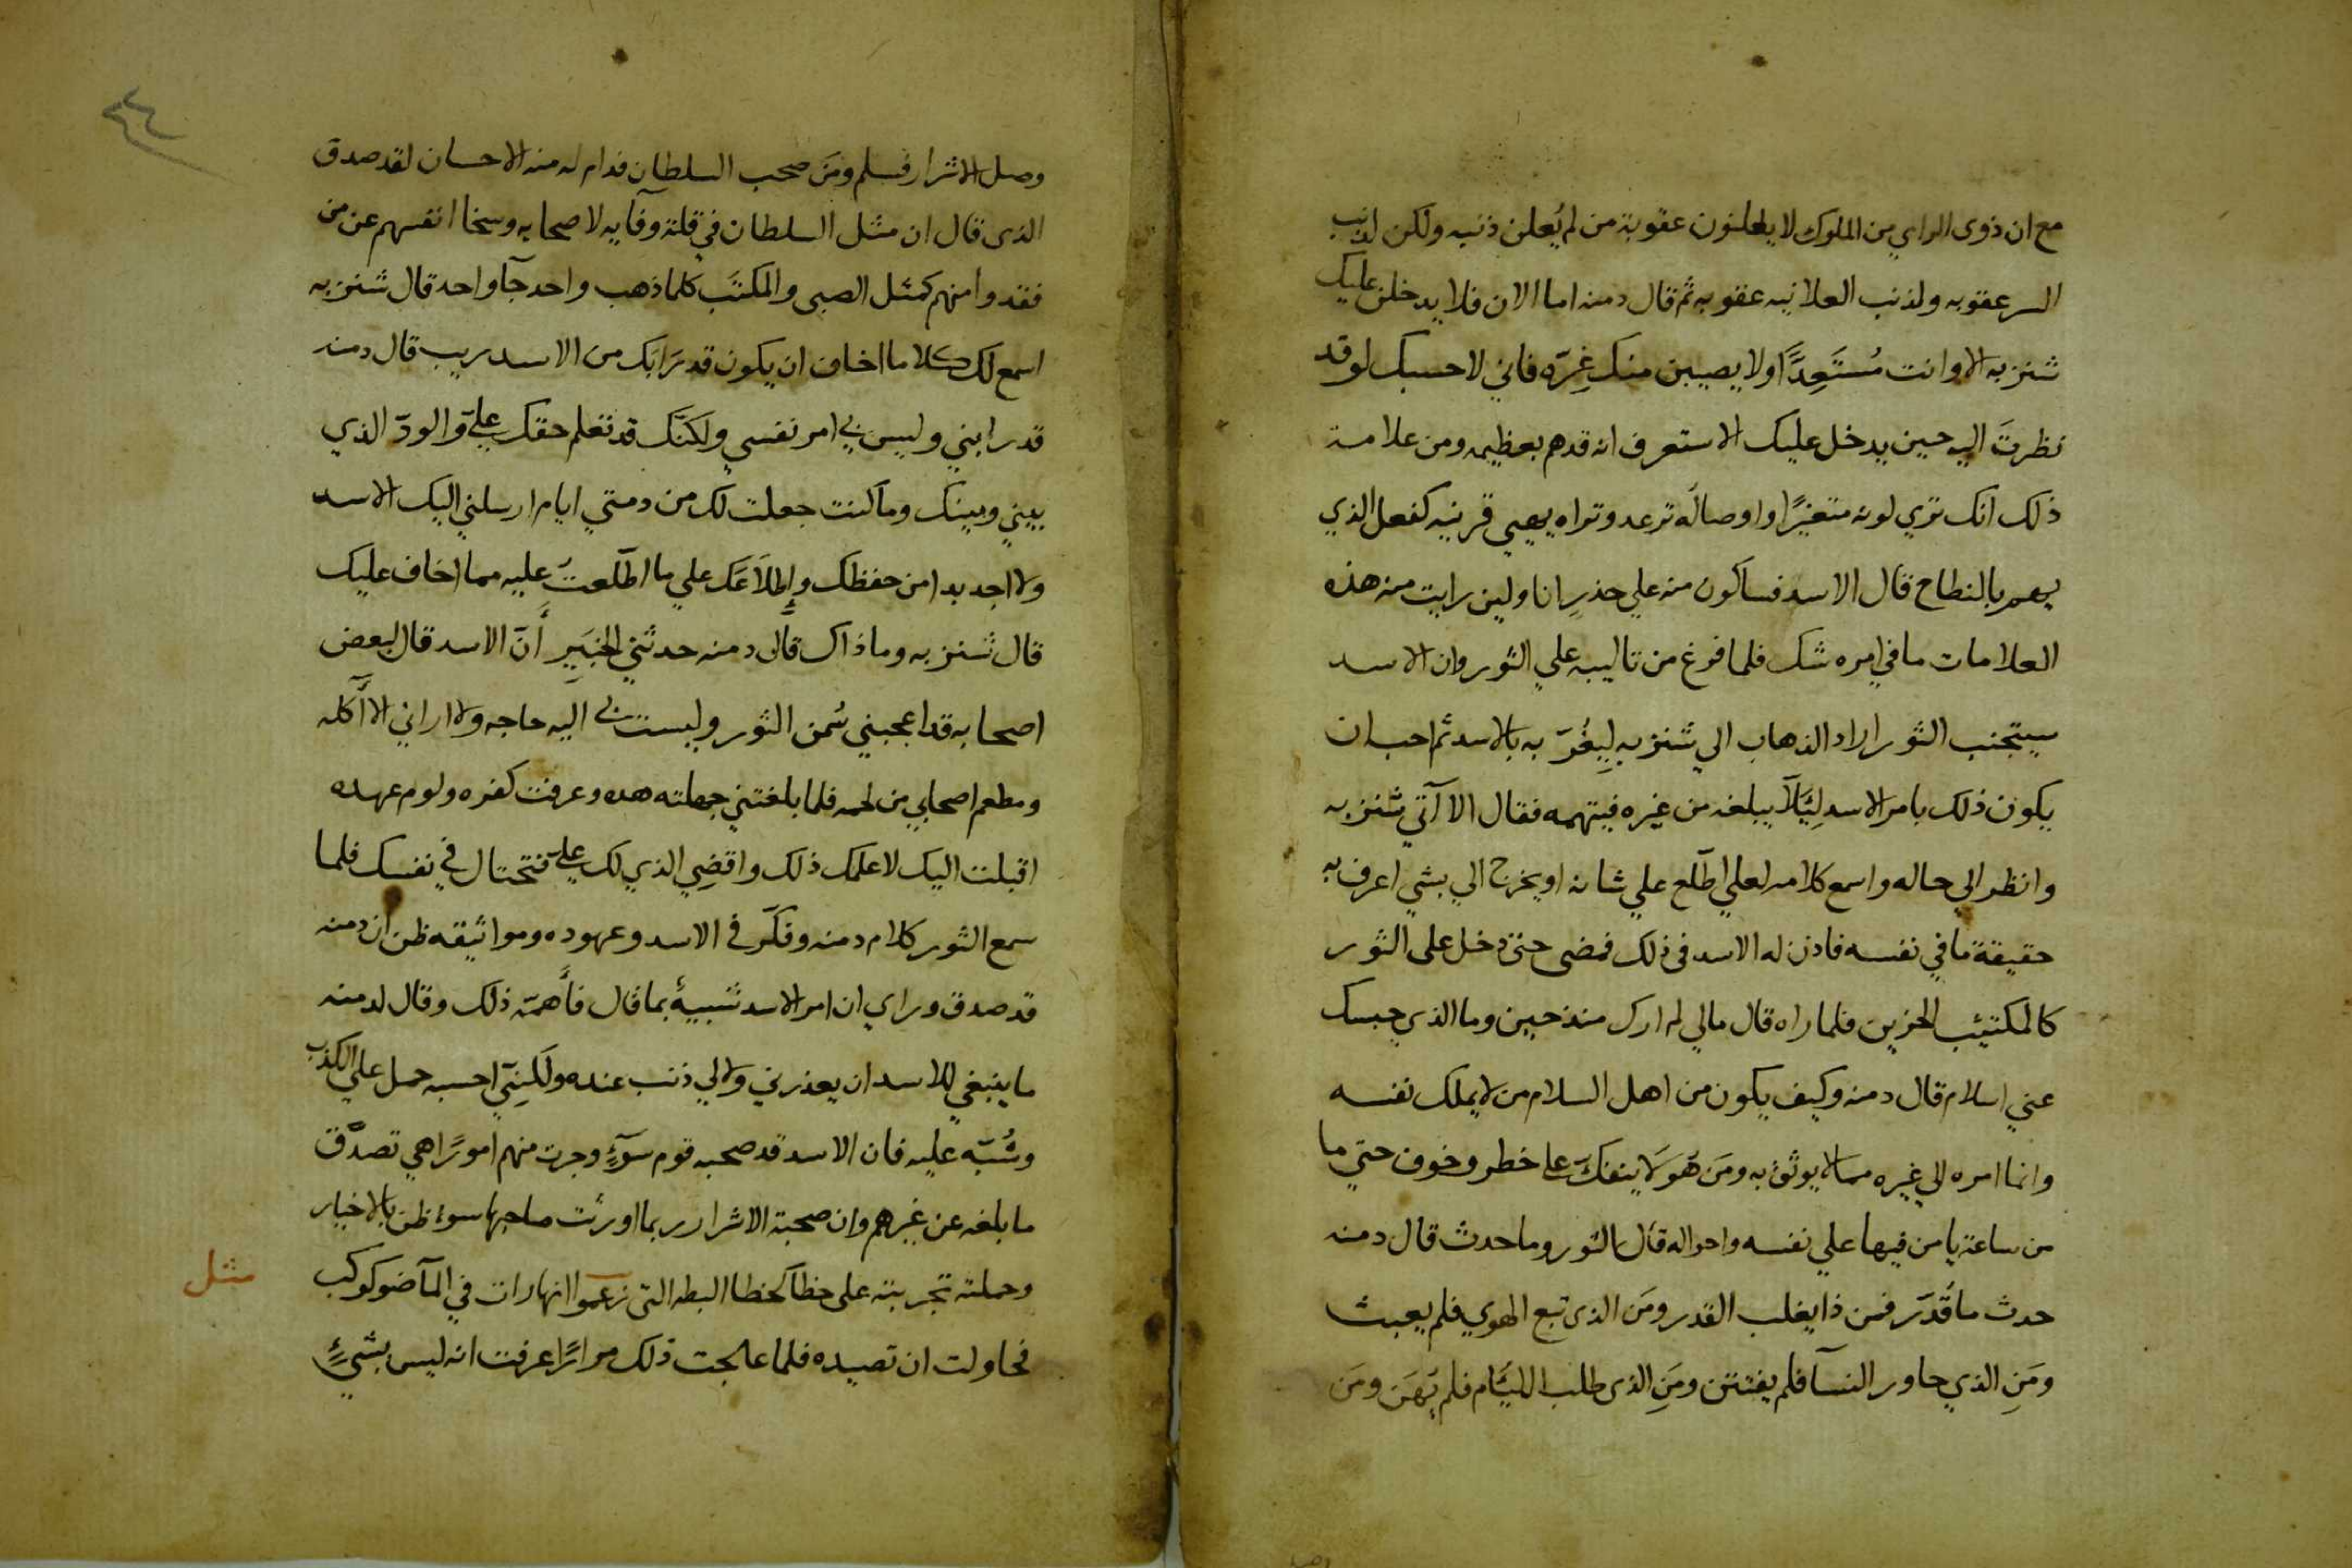 مع ان ذوى الراي من الملوك لا يعلنون عقوبة من لم يُعلن ذنبه ولكن لذنب
السر عقوبه ولذنب العلانيه عقوبه ثم قال دمنه اما الان فلا يدخلن عليك
شنزبه الا وانت مُستَعِدًّا ولا يصيبن منك غِرّه فاني لاحسبك لو قد
نظرتَ اليه حين يدخل عليك لا ستعرف انه قدهم بعظيمه ومن علامة
ذلك انك تري لونه متغيرًا واوصاله ترعد وتراه يهيي قرنيه كفعل الذي
يهم بالنطاح قال الاسد فساكون منه علي حذرٍ انا ولين رايت منه هذه
العلامات ما في امره شك فلما فرغ من تاليبه علي الثور وان الاسد
سيتجنب الثور اراد الذهاب الي شنزبه لِيغُرّ به بالاسد ثم احب ان
يكون ذلك بامر الاسد لِئَلّا يبلغه من غيره فيتهمه فقال الا آتي شنزبه
وانظر الي حاله واسمع كلامه لعلي اطّلع علي شانه او يخرج الي بشي اعرف به
حقيقة ما في نفسه فاذن له الاسد في ذلك فمضى حتى دخل على الثور
كالمكتيئب الحزين فلما راه قال مالي لم ارك منذ حين وما الذي حبسك
عني اسلام قال دمنه وكيف يكون من اهل السلام من لا يملك نفسه
وانما امره الي غيره مما لا يوثق به ومَن هُو لَا ينفكّ علا خطر وخوف حتي ما
من ساعة يامن فيها علي نفسه واحواله قال الثور وما حدث قال دمنه
حدث ما قُدّر فمن ذا يغلب القدر ومَن الذى تبع الهوي فلم يعبث
ومَنِ الذي جاور النسآ فلم يفتتن ومَنِ الذى طلب الليئام فلم يُهَن ومَن
٤٤
وصل الاشرار فسلم ومَن صحب السلطان فدام له منه الاحسان لقد صدق
الذى قال ان مثل السلطان في قلة وفآيه لاصحابه وسخا انفسهم عن من
فقدوا منهم كمثل الصبى والمكتَب كلما ذهب واحد جآ واحد قال شنزبه
اسمع لك كلاما اخاف ان يكون قد رَابَك من الاسد ريب قال دمنه
قد رابني وليس لي امر نفسي ولكنّك قد تعلم حقك عليّ والودّ الذي
بيني وبينك وما كنت جعلت لك من ذمتي ايام ارسلني اليك الاسد
ولا اجد بدا من حفظك وإطلاَعَك علي ما اطّلعتُ عليه مما اخاف عليك
قال شنزبه وما ذاك قال دمنه حدثني الخبير أَنّ الاسد قال لبعض
اصحابه قد اعجبني سُمن الثور وليست لي اليه حاجه ولا اراني الا أكله
ومطعم اصحابي من لحمه فلما بلغتني جهلته هده وعرفت كفره ولوم عهده
اقبلت اليك لاعلمك ذلك واقضِي الذي لك عليّ فتحتال في نفسك فلما
سمع الثور كلام دمنه وفكّر في الاسد وعهوده ومواثيقه ظن ان دمنه
قد صدق وراي ان امر الاسد شبيهٌ بما قال فأهمّه ذلك وقال لدمنه
ما ينبغي للاسد ان يعذرني ولا لي ذنب عنده ولكنِّي احسبه حمل علي الكذب
وشُبّه عليه فان الاسد قد صحبه قوم سَوءٍ وجرت منهم امورًا هي تصدّق
ما بلغه عن غيرهم وان صحبة الاشرار ربما اورثت صاحبها سوء ظن بالاخيار
وحملته تجربته على خطآ كخطا البطه التى زعموا انها رات في المآ ضو كوكب
مثل
فحاولت ان تصيده فلما عالجت ذلك مرارًا عرفت انه ليس بشيءٍ